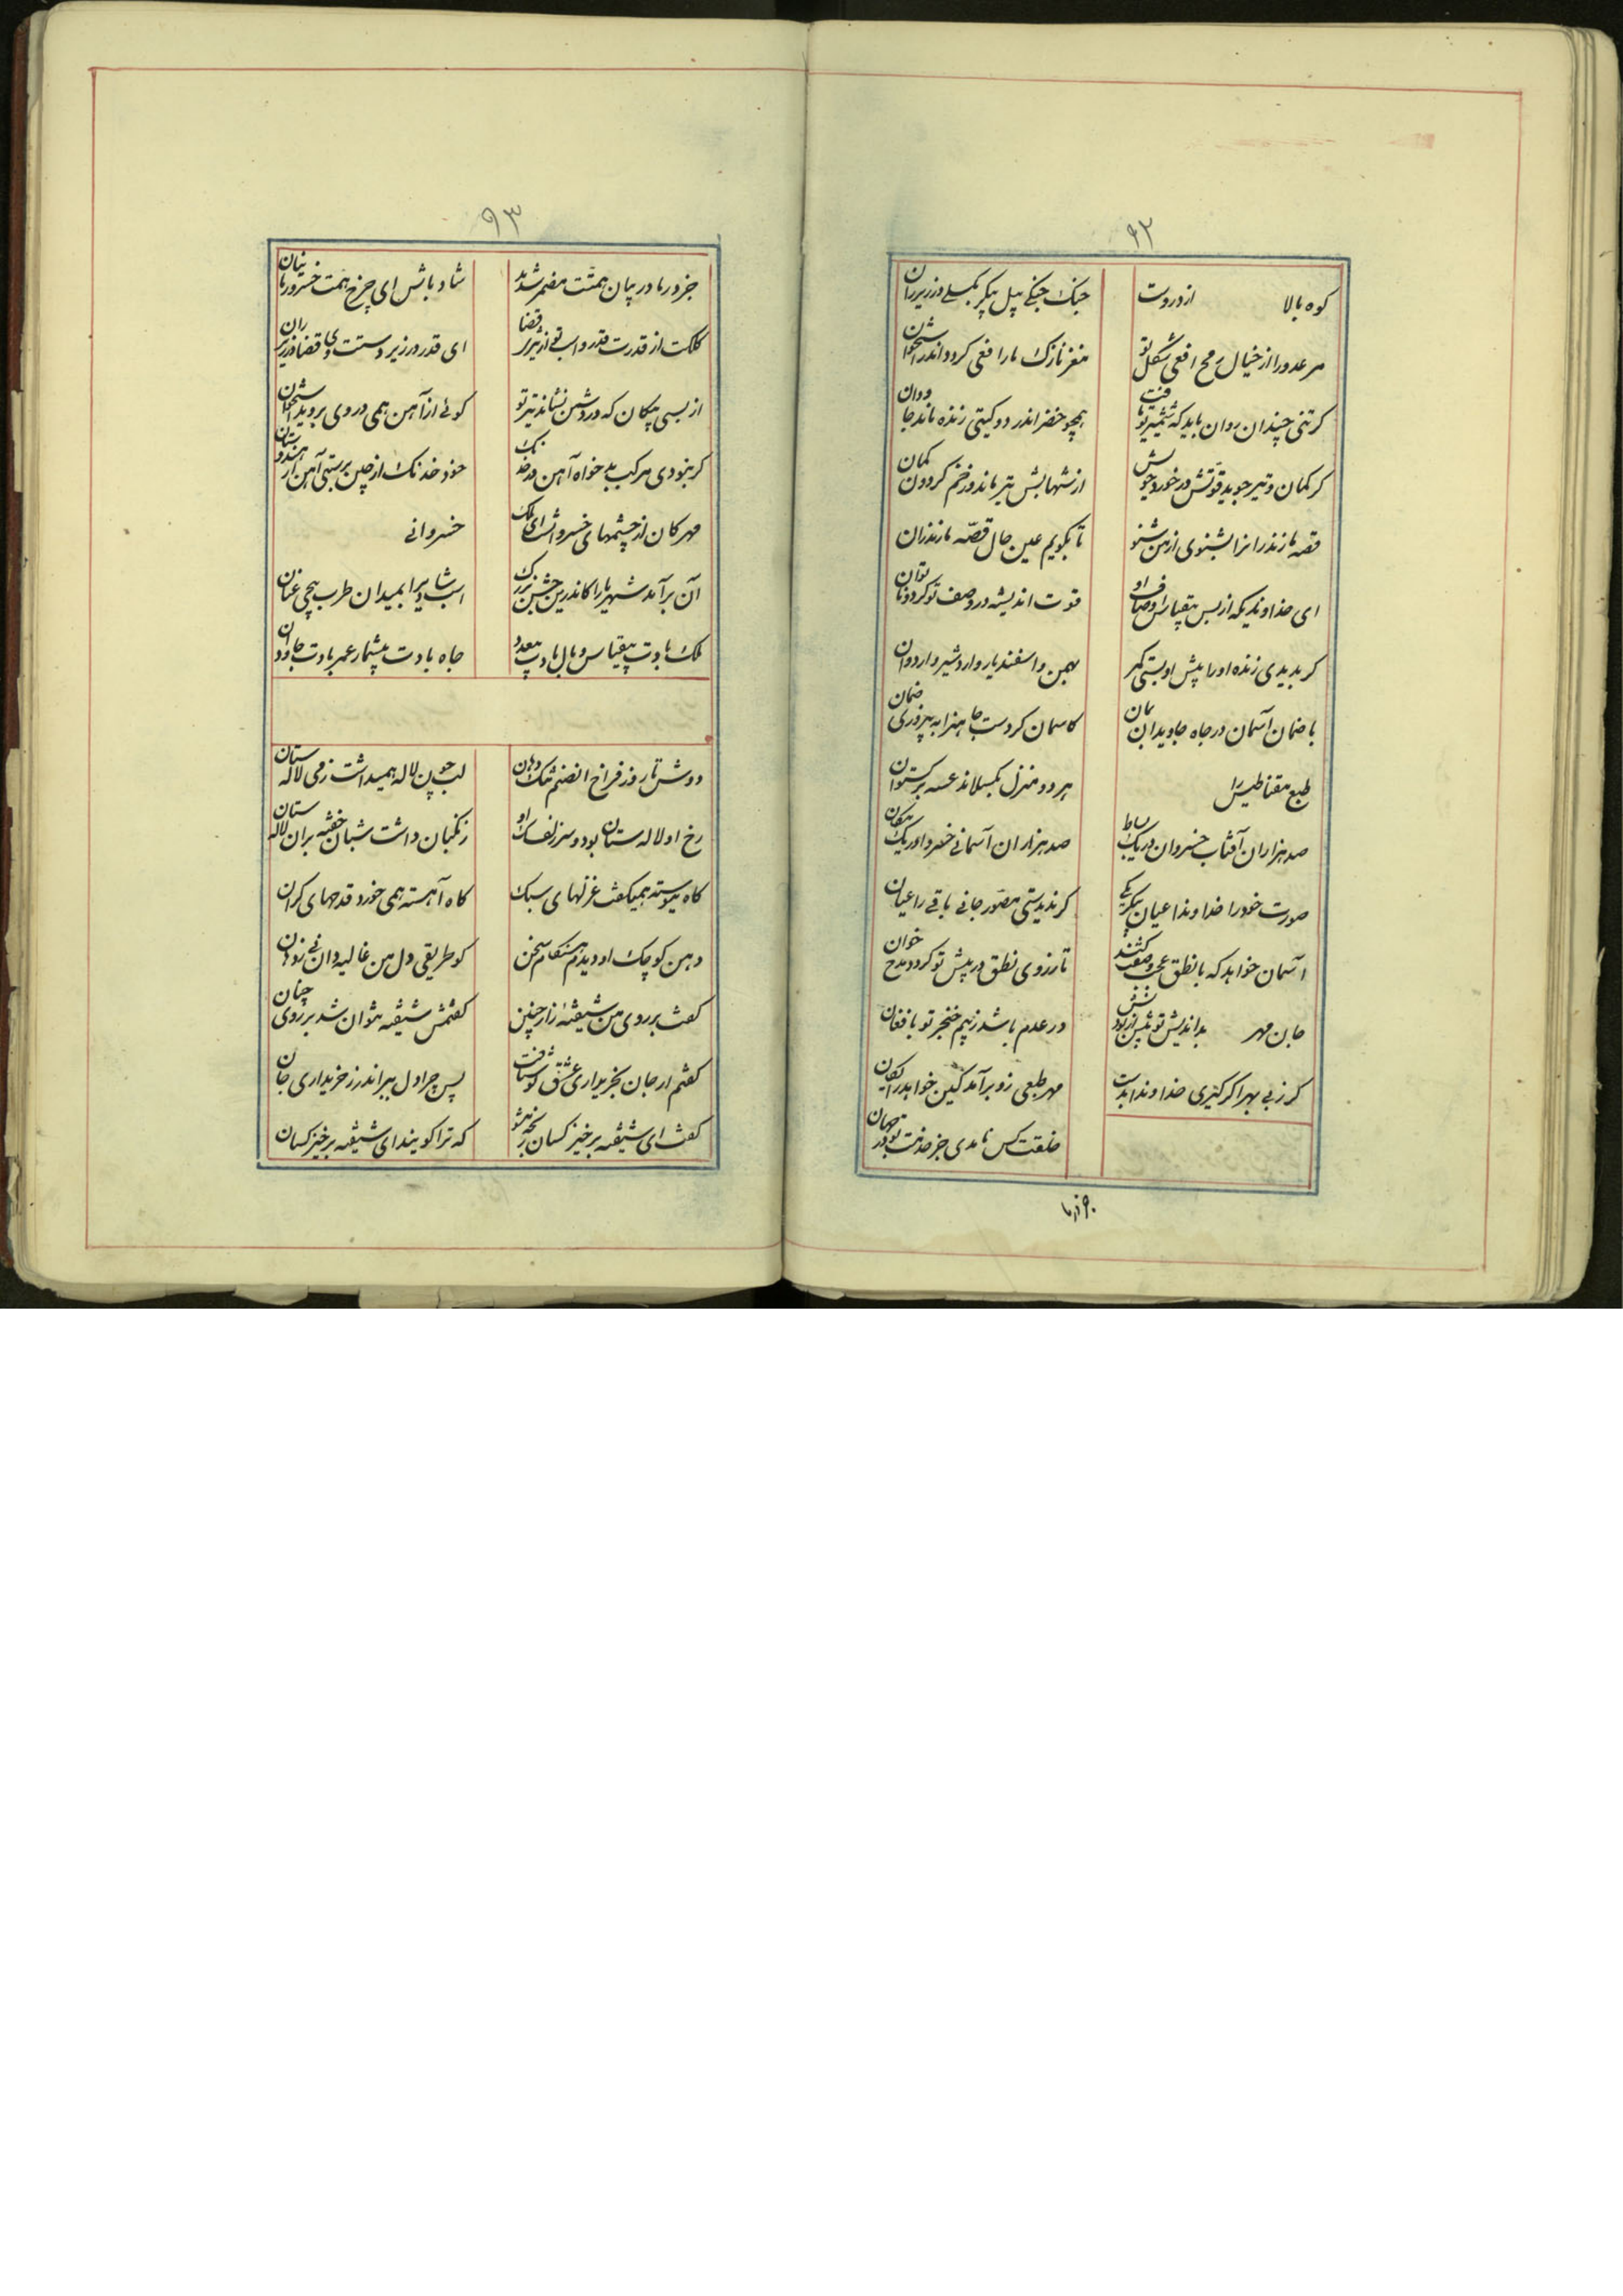 ۹۲
کوه بالا از دروت
جنک جنکی پیل پیکر یکسلی در زیر ران
مر عدو را از خیال رمح افعی شکل تو
مغز نازک مار افعی کردد اندر استخوان
کر تنی چندان روان یابد که شمشیر تو یافت
همچو خضر اندر دو کیتی زنده ماند جاودان
کر کمان و تیر جوید قوتش در خورد خویش
از شهابش تیر باید وز خم کردون کمان
قصه مازندران را بشنوی از من شنو
تا بکویم عین حال قصه مازندران
ای خداوندیکه از بس بیقیاس اوصاف او
قوت اندیشه در وصف تو کردد ناتوان
کر بدیدی زنده او را پیش او بستی کمر
بهمن و اسفندیار و اردشیر و اردوان
با ضمان آسمان در جاه جاویدان بمان
کاسمان کردست جاهت را به پیروزی ضمان
طبع مقناطیس را
بر دو منزل بکسلاند عسه برکستوان
صد هزاران آفتاب خسروان در یک بساط
صد هزاران آسمانی خسروا در یک مکان
صورت خود را خداوندا عیان پیکر یکی
کر ندیدستی مصور جانی باقی را عیان
آسمان خواهد که با نطق عجب وصفت کنند
تا رزوی نطق در پیش تو کردد مدح خوان
جان مهر بداندیش تو پیش از بودنش
در عدم باشد ز بیم خنجر تو با فغان
کر ز بی مهر اکر کیری خداوندا بدست
مهر طبعی زو برآمد کین خواهد رایکان
خلقت کس نامدی جز خدمت تو در جهان
جز و رها
۹۳
جزورها در بیان همتت مضمر شدند
شاد باش ای چرخ همت خسرو رها بنان
کلکت از قدرت قدر و اسب تو از تیر قضا
ای قدر در زیر دستت وی قضا در زیر ران
از بسی پیکان که در دشمن نشاند تیر تو
کوئی از آهن همی در وی بروید استخوان
کر نبودی مرکب بدخواه آهن در خدنک
خود خدنک از چین برستی آهن از هندوستان
مهرکان از چشمهای خسروانست ای ملک
خسروانی
آن برآمد شهریارا کاندرین جشن بزرک
اسب شادی را بمیدان طرب پیچی عنان
ملک بادت بیقیاس و مال بادت بیعدد
جاه بادت بیشمار عمر بادت جاودان
دوش تا روز فراخ انصنم تنک دهان
لب چون لاله همیداشت ز می لاله ستان
رخ او لاله ستان بود و سر زلفک او
زنکیان داشت شبان خفته بران لاله ستان
کاه پیوسته همیکفت غزلهای سبک
کاه آهسته همی خورد قدحهای کران
دهن کوچک او دیدم هنکام سخن
کو طریقی دل من غالیه دانی زدهان
کفت بر روی من شیفته زار چنین
کفتمش شیفته نتوان شد بر روی چنان
کفتم ار جان بخریداری عشق تو شتافت
پس چرا دل ببر اندر ز خریداری جان
کفت ای شیفته برخیز کسان بخبر شو
که ترا کویند ای شیفته برخیز کسان